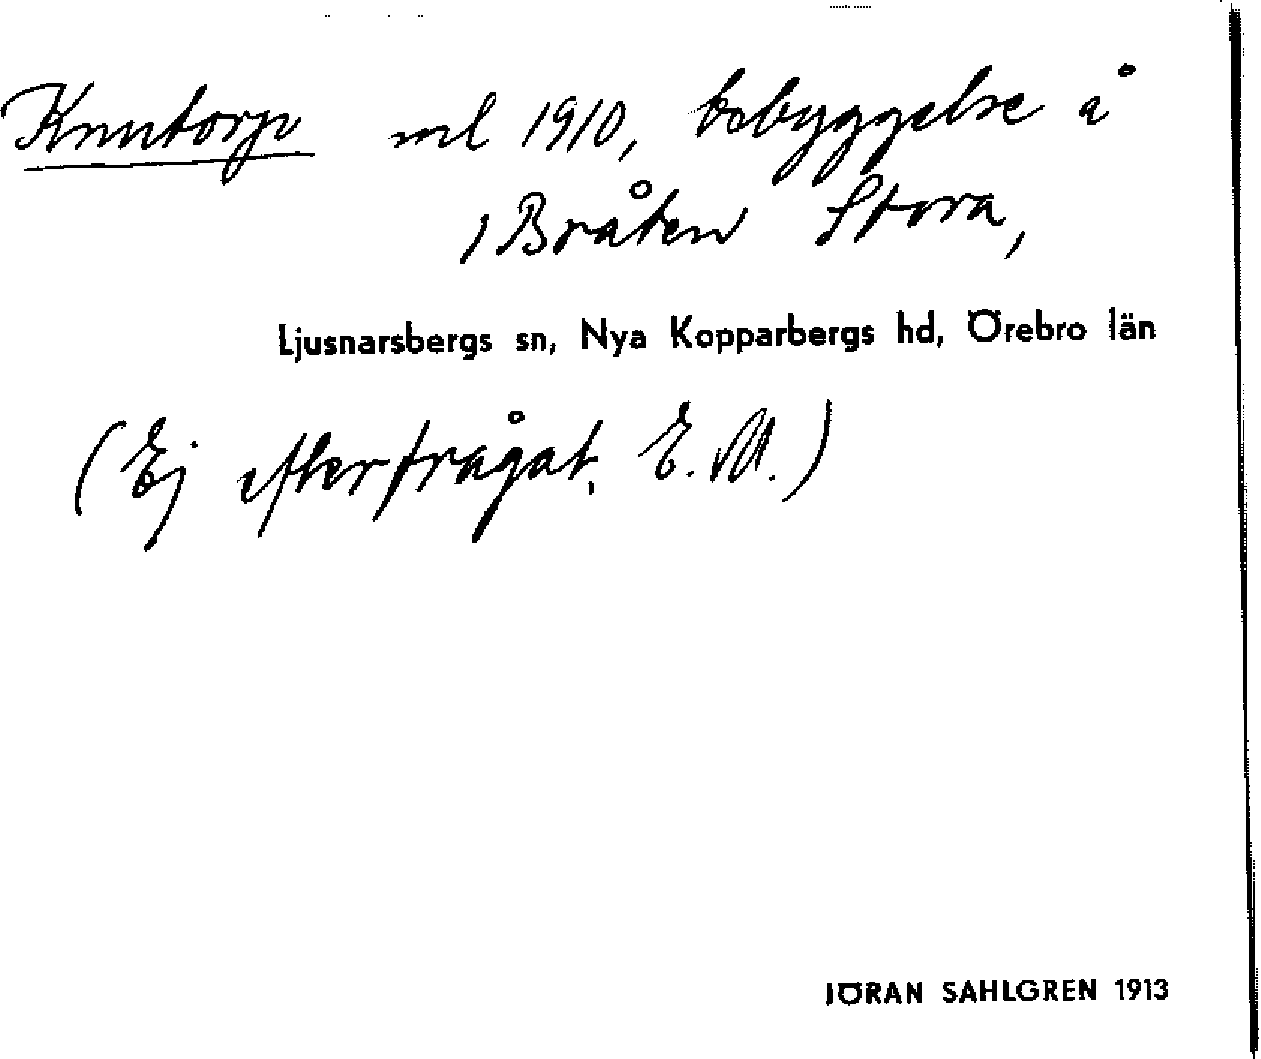 Knutorp ml 1910, bebyggelse å
1 Bråten Stora,
Ljusnarsbergs sn, Nya Kopparbergs hd, Örebro län
(Ej efterfrågat. E. M.)
JÖRAN SAHLGREN 1913